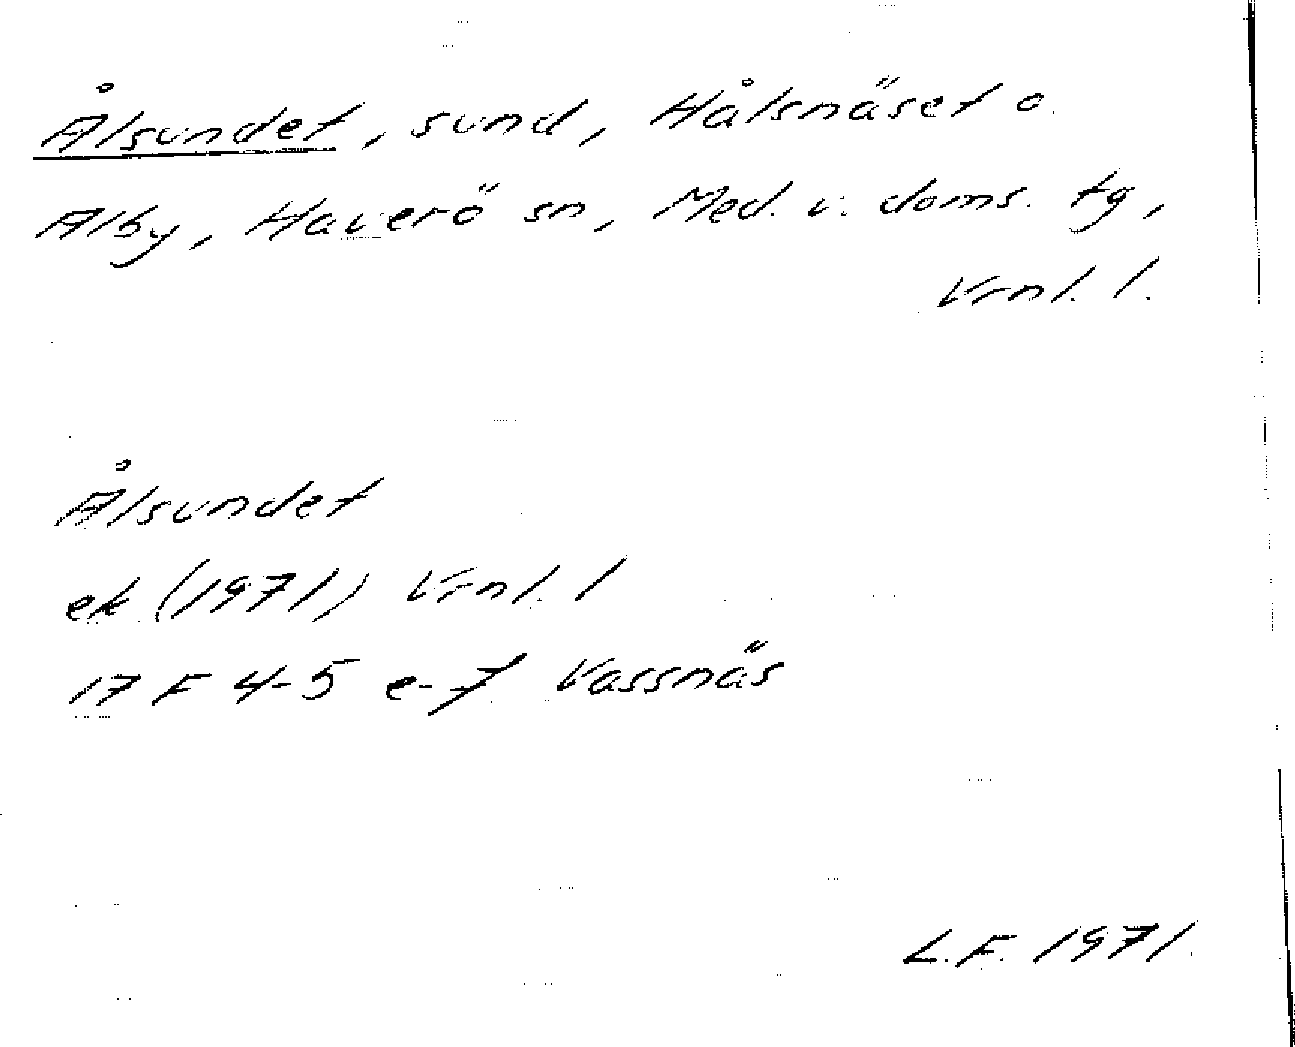 Ålsundet, sund, Hålsnäset o.
Alby, Haverö sn, Med. v. doms. tg,
Vrnl. l.
Ålsundet
ek (1971) Vrnl. l
17 F 4-5 e-f Vassnäs
L.F. 1971